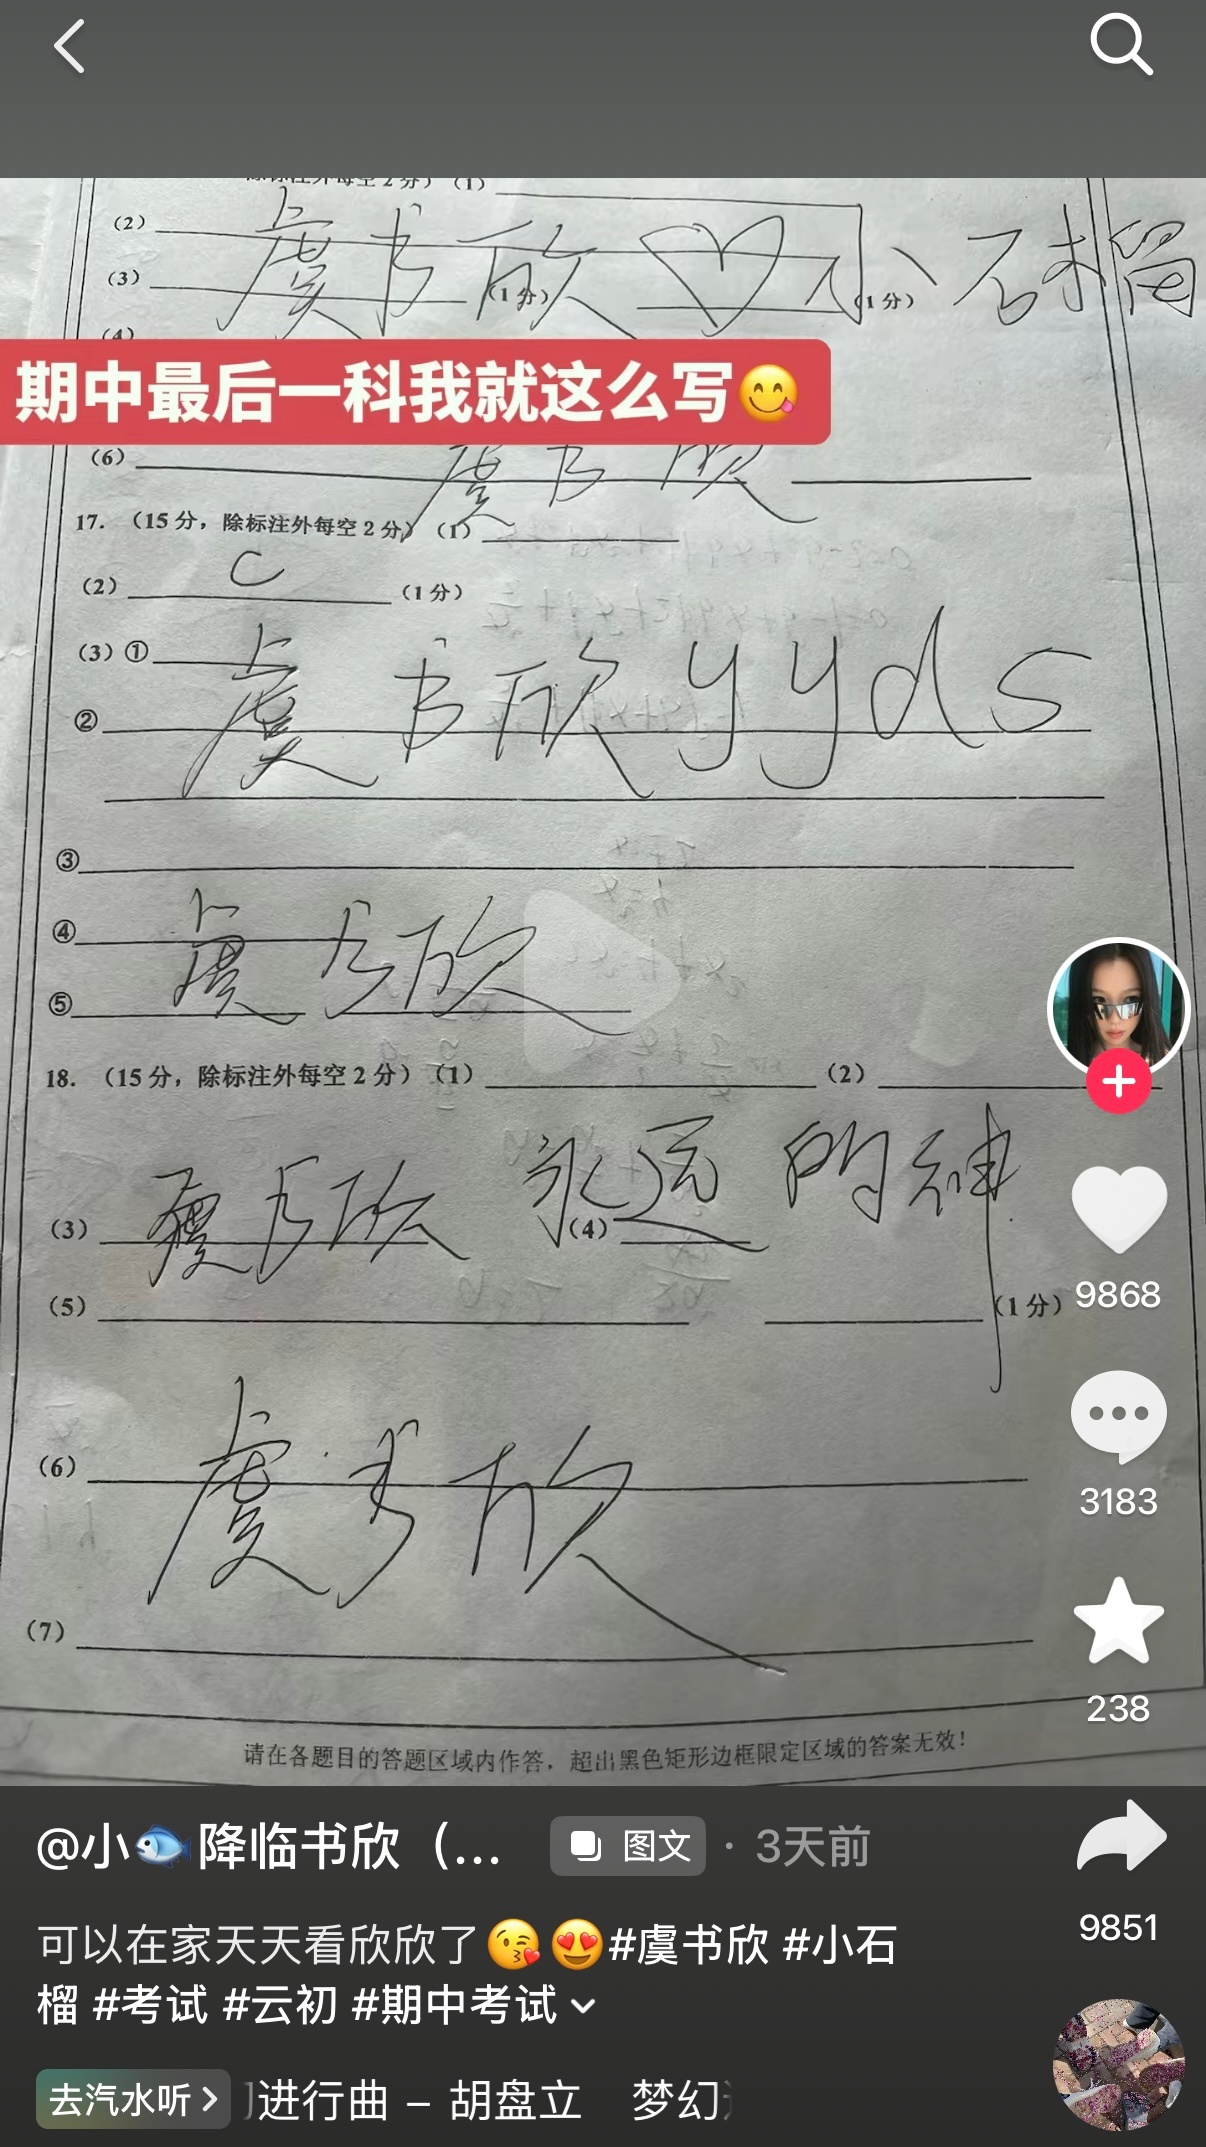 除标注外每空2分）（1）
（2）
虞书欣♡小石榴
（3）
（1分）
（1分）
（4）
期中最后一科我就这么写😋
（6）
虞书欣
17. （15分，除标注外每空2分）（1）
（2） C （1分）
（3）①
虞书欣yyds
②
③
④
虞书欣
⑤
18. （15分，除标注外每空2分）（1） （2）
虞书欣 永远的神
（3） （4）
（5） （1分）
9868
3183
虞书欣
（6）
（7）
238
请在各题目的答题区域内作答，超出黑色矩形边框限定区域的答案无效！
@小🐟降临书欣（... 图文 · 3天前
可以在家天天看欣欣了😘😍#虞书欣 #小石
榴 #考试 #云初 #期中考试
9851
去汽水听 进行曲 – 胡盘立 梦幻